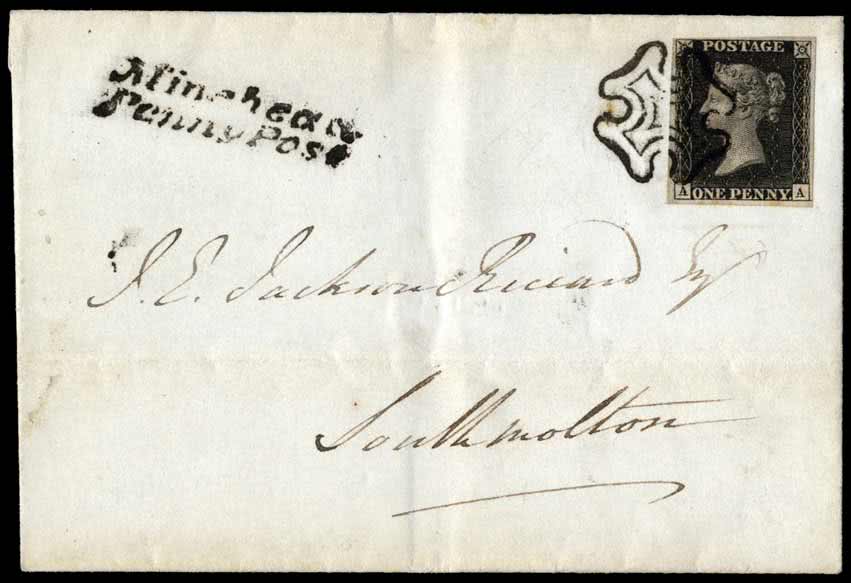 Minehead
Penny Post
POSTAGE
A ONE PENNY A
J. E. Jackson Riccard Esq
Southmolton